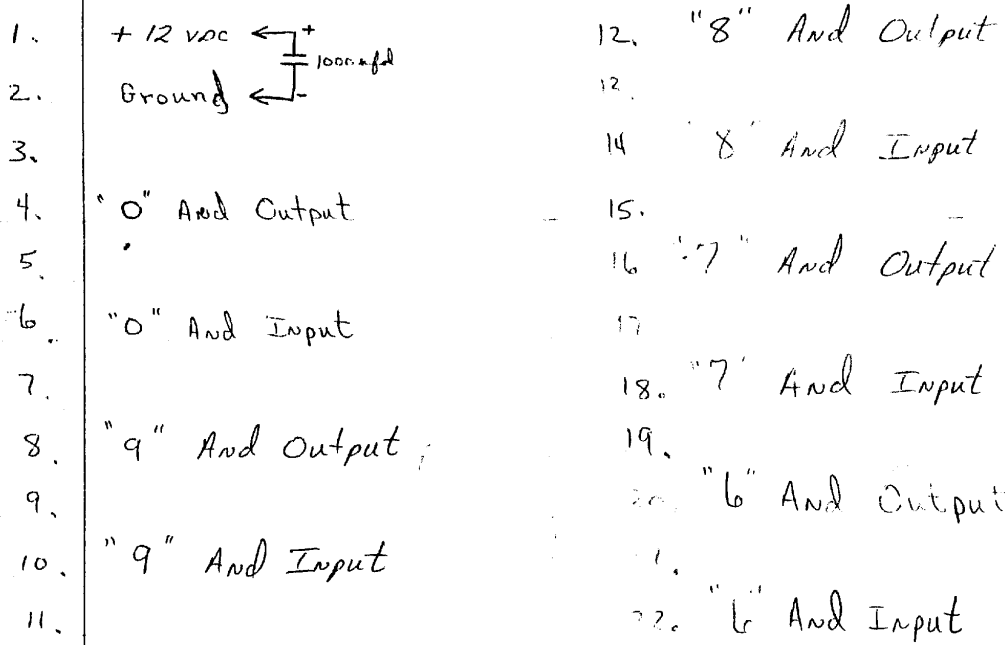 1. + 12 VDC +
1000 mfd
2. Ground -
3.
4. "0" And Output
5.
6. "0" And Input
7.
8. "9" And Output
9.
10. "9" And Input
11.
12. "8" And Output
12.
14 "8" And Input
15.
16 "7" And Output
17
18. "7" And Input
19.
20. "6" And Output
1.
22. "6" And Input